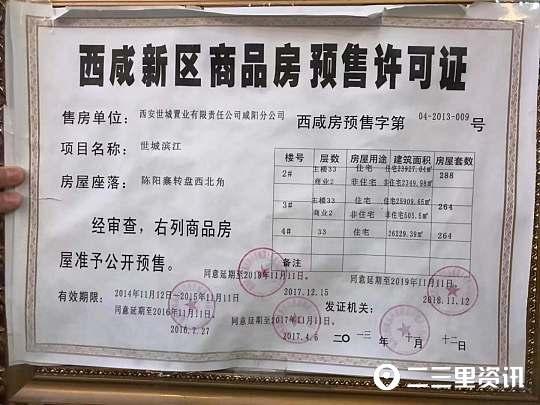 西咸新区商品房预售许可证
售房单位：西安世城置业有限责任公司咸阳分公司
西咸房预售字第 04-2013-009 号
项目名称：世城滨江
房屋座落：陈阳寨转盘西北角
经审查，右列商品房
屋准予公开预售。
楼号 层数 房屋用途 建筑面积 房屋套数
2# 主楼33 住宅 住宅23927.04㎡ 288
商业2 非住宅 非住宅2349.98㎡
3# 主楼33 住宅 住宅25909.65㎡ 264
商业2 非住宅 非住宅503.5㎡
4# 33 住宅 26229.39㎡ 264
备注
同意延期至2018年11月11日。
2017.12.15
同意延期至2019年11月11日。
2018.11.12
有效期限：2014年11月12日—2015年11月11日
同意延期至2016年11月11日。
2016.7.27
同意延期至2017年11月11日。
2017.4.6
发证机关：
二〇一三年十一月十二日
二三里资讯